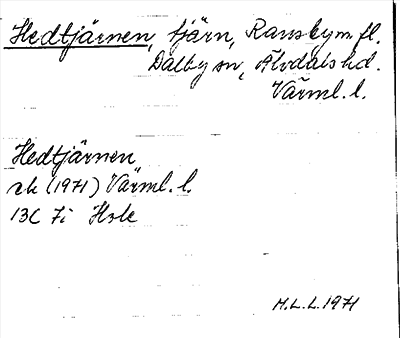 Hedtjärnen, tjärn, Ransby m. fl.
Dalby sn, Älvdals hd.
Värml. l.
Hedtjärnen
rk (1971) Värml. l.
13C 7i Hole
H.L.L. 1971